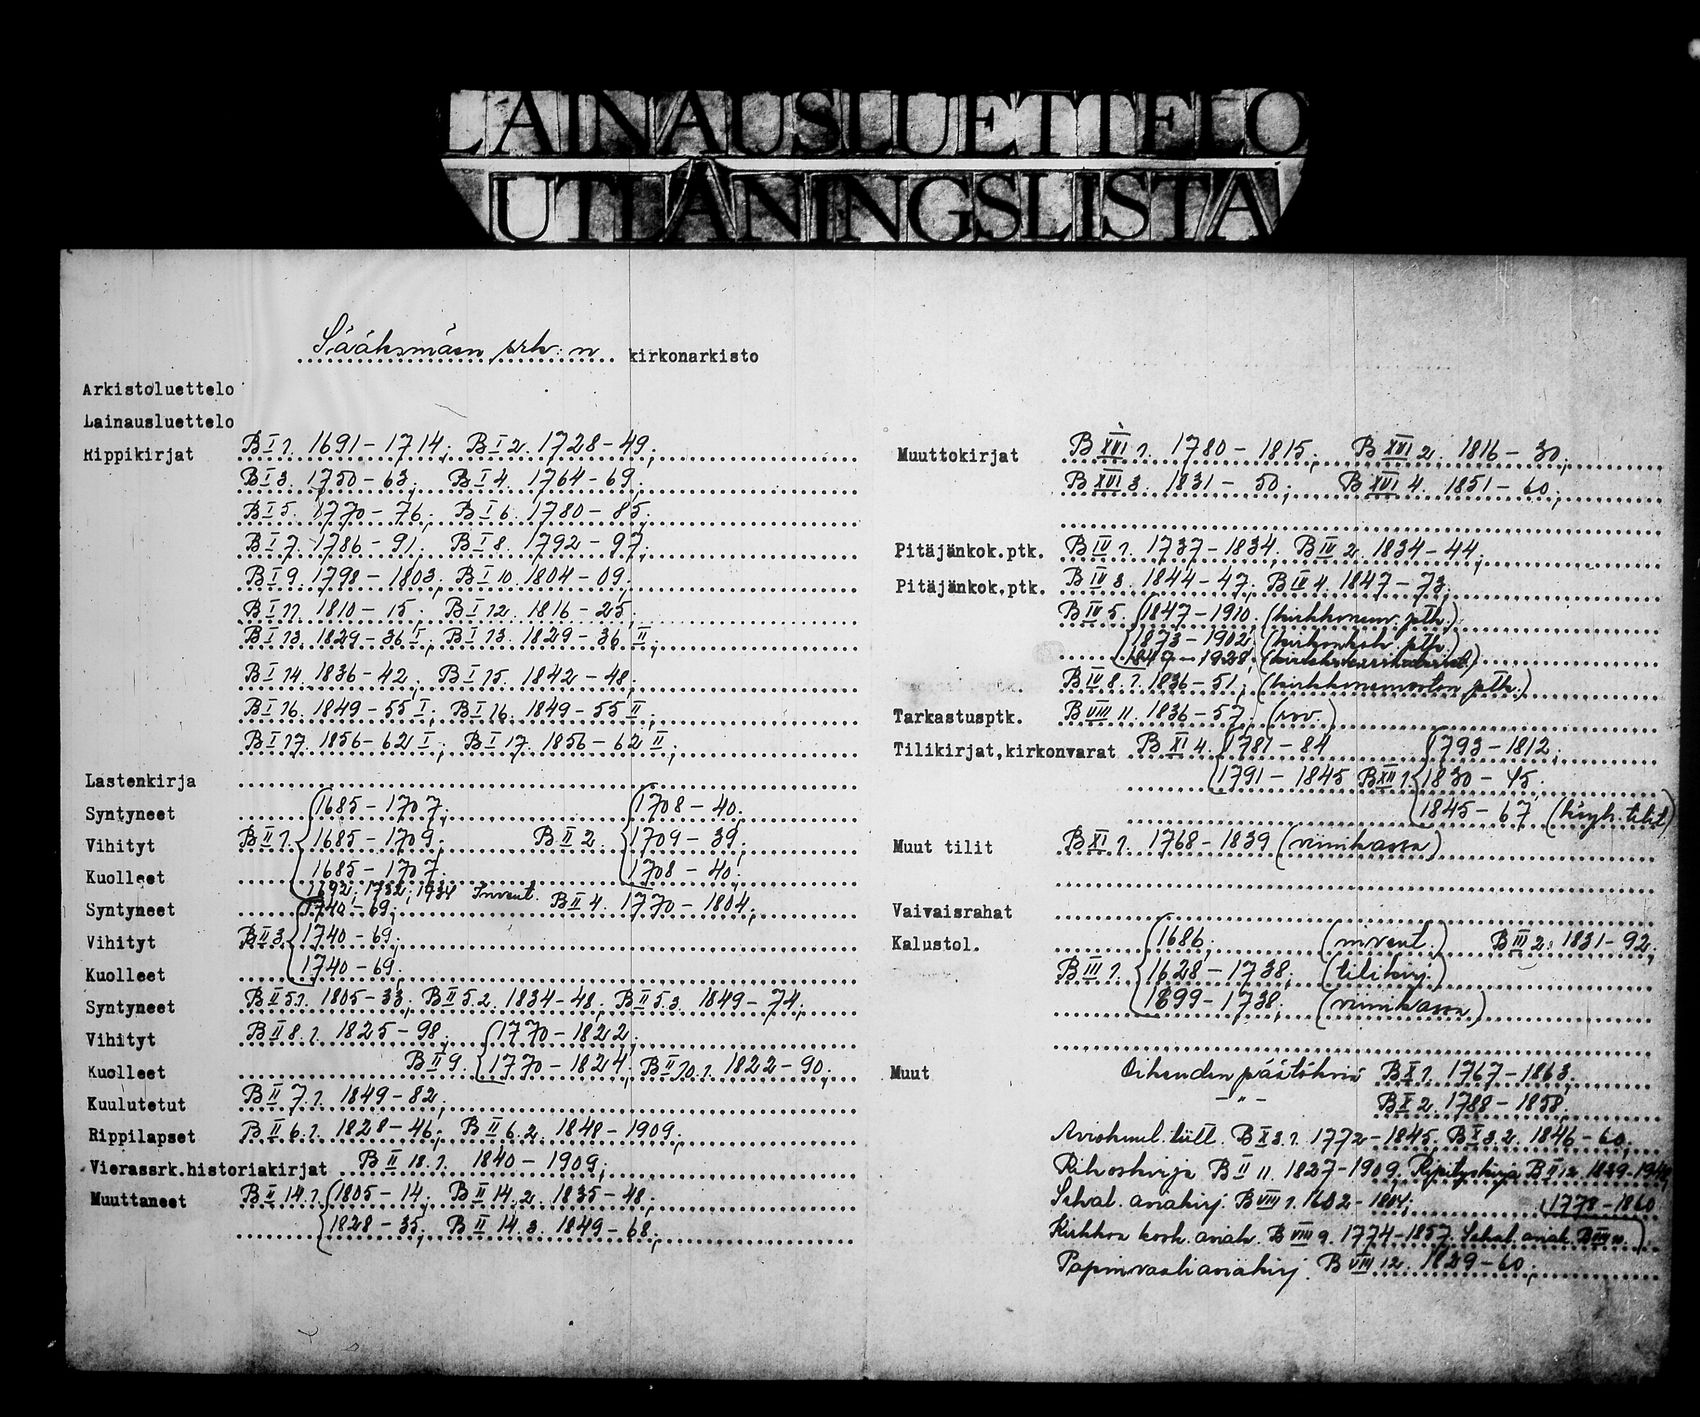 LAINAUSLUETTELO
UTLÅNINGSLISTA
Sääksmäen srk:n kirkonarkisto
Arkistoluettelo
Lainausluettelo
Rippikirjat B I 1. 1691-1714; B I 2. 1728-49;
B I 3. 1750-63; B I 4. 1764-69;
B I 5. 1770-76; B I 6. 1780-85;
B I 7. 1786-91; B I 8. 1792-97;
B I 9. 1798-1803; B I 10. 1804-09;
B I 11. 1810-15; B I 12. 1816-25;
B I 13. 1829-36 I; B I 13. 1829-36 II;
B I 14. 1836-42; B I 15. 1842-48;
B I 16. 1849-55 I; B I 16. 1849-55 II;
B I 17. 1856-62 I; B I 17. 1856-62 II;
Lastenkirja
Syntyneet 1685-1707; 1708-40;
Vihityt B II 1. 1685-1709; B II 2. 1709-39;
Kuolleet 1685-1707. 1708-40;
1692; 1732; 1734 Invent.
Syntyneet 1740-69; B II 4. 1770-1804;
Vihityt B II 3. 1740-69;
Kuolleet 1740-69;
Syntyneet B II 5.1. 1805-33; B II 5.2. 1834-48; B II 5.3. 1849-74;
Vihityt B II 8.1. 1825-98; 1770-1822;
Kuolleet B II 9. 1770-1824; B II 10.1. 1822-90;
Kuulutetut B II 7.1. 1849-82;
Rippilapset B II 6.1. 1828-46; B II 6.2. 1848-1909;
Vierassrk.historiakirjat B II 18.1. 1840-1909;
Muuttaneet B II 14.1. 1805-14; B II 14.2. 1835-48;
1828-35; B II 14.3. 1849-68;
Muuttokirjat B XVI 1. 1780-1815; B XVI 2. 1816-30;
B XVI 3. 1831-50; B XVI 4. 1851-60;
Pitäjänkok.ptk. B IV 1. 1737-1834; B IV 2. 1834-44;
Pitäjänkok.ptk. B IV 3. 1844-47; B IV 4. 1847-73;
B IV 5. 1847-1910 (kirkkoneuv. ptk.)
1873-1902 (kirkonkok. ptk.)
-1928;
B IV 8.1. 1836-51; (kirkkoneuvoston ptk.)
Tarkastusptk. B VIII 11. 1836-57; (rov.)
Tilikirjat,kirkonvarat B XI 4. 1781-84 1793-1812;
1791-1845 B XII 1. 1830-45;
1845-67 (kirk. tilit)
Muut tilit B XI 1. 1768-1839 (viinikassa)
Vaivaisrahat
Kalustol. 1686; (invent.) B III 2. 1831-92;
B III 1. 1628-1738; (tilikirj.)
1699-1738; (viinikassa)
Muut Oikeuden päätöksiä B X 1. 1767-1863;
-"- B X 2. 1788-1858;
Aviokuul. tüll. B X 3.1. 1772-1845; B X 3.2. 1846-60;
Rikoskirja B II 11. 1827-1909; Ripityskirja B II 12. 1839-1948;
Sekal. asiakirj. B VIII 1. 1602-1804; 1778-1860
Kirkkoa kosk. asiak. B VIII 9. 1774-1857. Sekal. asiak. B VIII 10.
Papinvaaliasiakirj. B VIII 12. 1829-60;